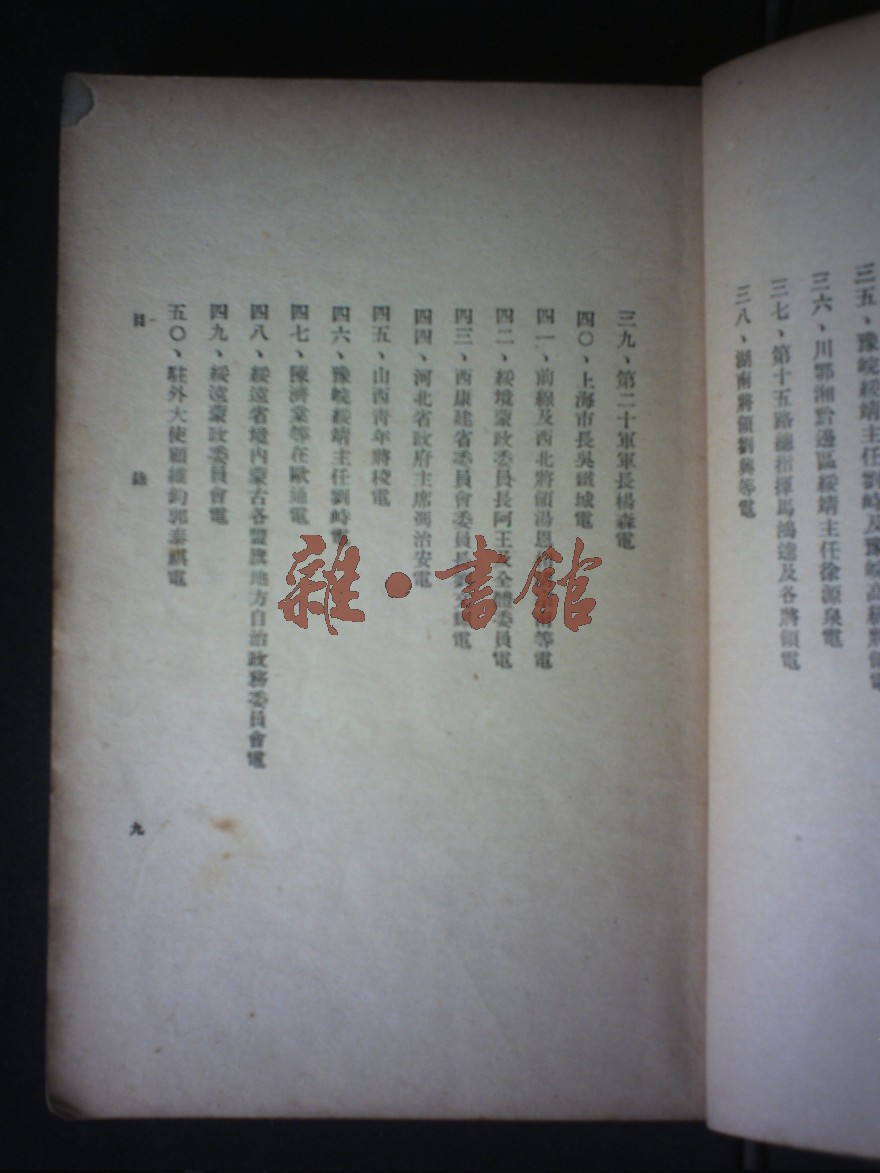 三五、豫皖綏靖主任劉峙及豫皖高級將領電
三六、川鄂湘黔邊區綏靖主任徐源泉電
三七、第十五路總指揮馬鴻逵及各將領電
三八、湖南將領劉興等電
三九、第二十軍軍長楊森電
四〇、上海市長吳鐵城電
四一、前線及西北將領湯恩 等電
四二、綏境蒙政委員長阿王及全體委員電
四三、西康建省委員會委員長 電
四四、河北省政府主席馮治安電
四五、山西青年將校電
四六、豫皖綏靖主任劉峙電
四七、陳濟棠等在歐通電
四八、綏遠省境內蒙古各盟旗地方自治政務委員會電
四九、綏遠蒙政委員會電
五〇、駐外大使顧維鈞郭泰祺電
目錄
九
雜·書館